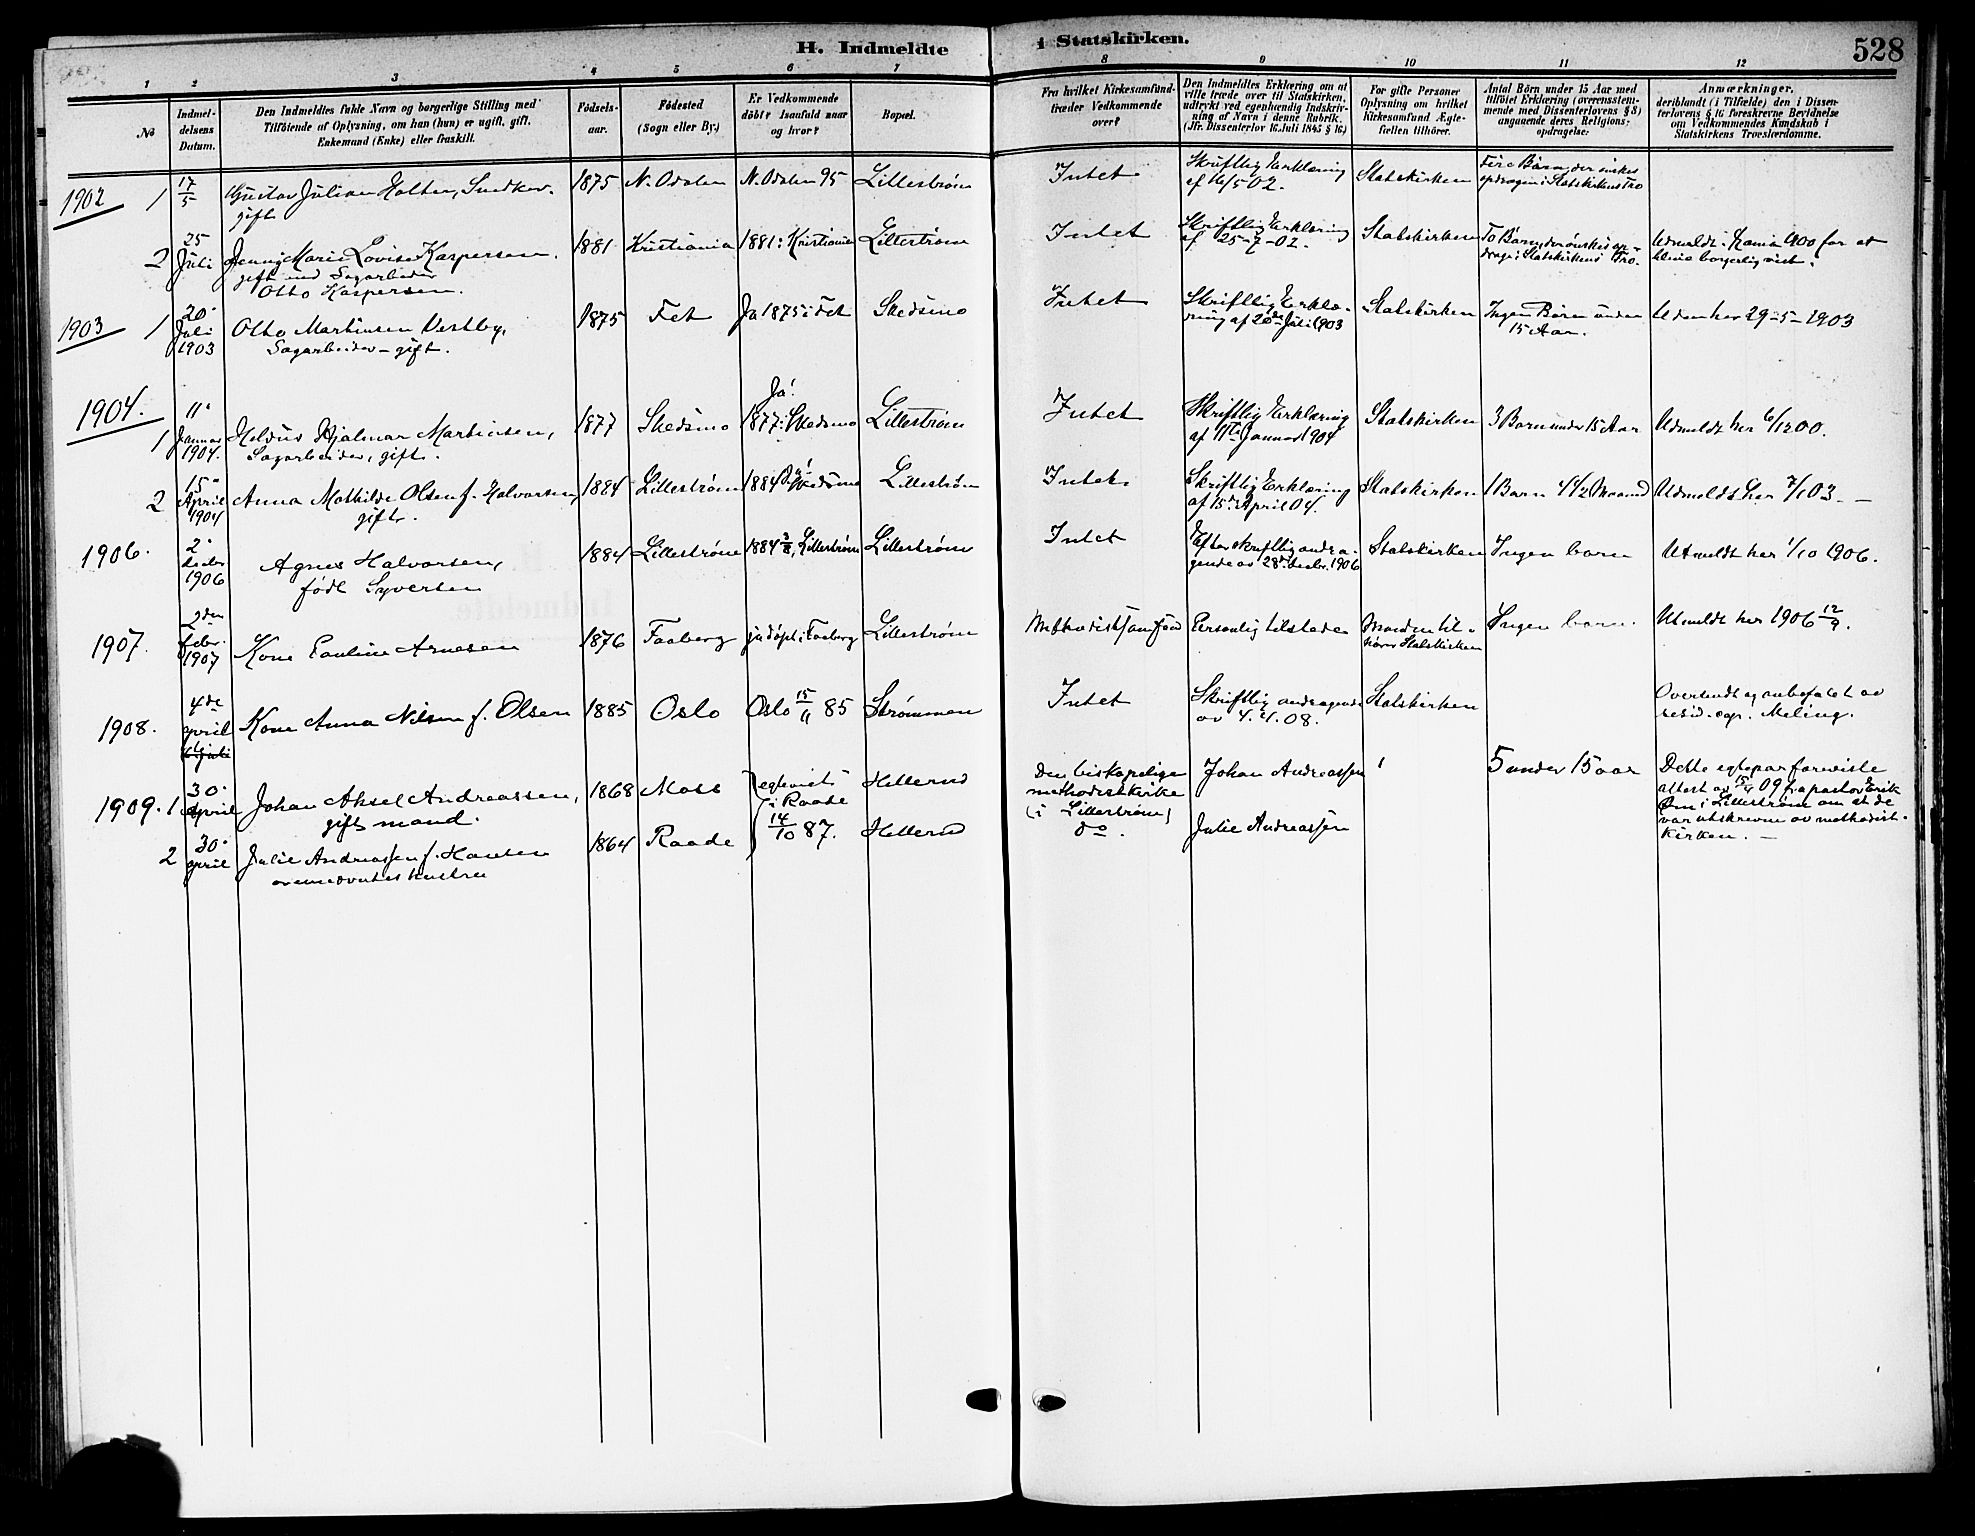 H. Indmeldte i Statskirken. 528
1 2 3 4 5 6 7 8 9 10 11 12
No
Indmeldelsens Datum.
Den Indmeldtes fulde Navn og borgerlige Stilling med
Tilföiende af Oplysning, om han (hun) er ugift, gift,
Enkemand (Enke) eller fraskilt.
Fødselsaar.
Fødested
(Sogn eller By.)
Er Vedkommende
döbt? Isaafald naar
og hvor?
Bopæl.
Fra hvilket Kirkesamfund
træder Vedkommende
over?
Den Indmeldtes Erklæring om at
ville træde over til Statskirken,
udtrykt ved egenhændig Indskrivning
af Navn i denne Rubrik.
(Jfr. Dissenterlov 16. Juli 1845 § 16.)
For gifte Personer
Oplysning om hvilket
Kirkesamfund Ægtefællen
tilhører.
Antal Börn under 15 Aar med
tilföiet Erklæring (overensstemmende
med Dissenterlovens § 8)
angaaende deres Religions-
opdragelse.
Anmærkninger,
deriblandt (i Tilfælde) den i Dissenterlovens
§ 16 foreskrevne Bevidnelse
om Vedkommendes Kundskab i
Statskirkens Troeslærdomme.
1902 1 17/5 Gustav Julian Holter, Snedker. 1875 N. Odalen N. Odalen 95 Lillestrøm Intet Skriftlig Erklæring Statskirken Fire Børn, der ønskes
gift af 16/5 02. opdragen i Statskirkens Tro
2 25 Juli Jenny Marie Lovise Kaspersen. 1881 Kristiania 1881 i Kristiania Lillestrøm Intet Skriftlig Erklæring Statskirken To Børn, der ønskes op- Udmeldt i 1900 for at
gift med Sagarbeider af 25-7-02. drage i Statskirkens Tro. blive borgerlig viet.
Otto Kaspersen.
1903 1 20. Juli 1903 Otto Martinsen Vestby, 1875 Fet Ja 1875 i Fet Skedsmo Intet Skriftlig Erklæ- Statskirken Ingen Børn under Ud her 29-5-1903
Sagarbeider - gift. ring af 20de Juli 1903 15 Aar.
1904. Ja!
1 11. Januar 1904. Hjalmar Martinsen, 1877 Skedsmo 1877 i Skedsmo Lillestrøm Intet Skriftlig Erklæring Statskirken 3 Børn under 15 Aar Udmeldt her 6/12 00.
Sagarbeider, gift. af 11te Januar 1904
2 15. April 1904 Anna Mathilde Olsen f. Halvorsen, 1884 Lillestrøm 1884 Skedsmo Lillestrøm Intet. Skriftlig Erklæring Statskirken 1 Barn 4 1/2 Maaned Udmeldt her 7/1 03. -
gift. af 15de April 04.
1906. 2. 1906 Agnes Halvorsen, 1884 Lillestrøm 1884, Lillestrøm Lillestrøm Intet Efter skriftlig andra- Statskirken Ingen barn Utmeldt her 1/10 1906.
født Syversen gende av 28de decbr. 1906
1907. 2den febr. 1907 Kone Pauline Arnesen 1876 Faaberg ja døpt i Faaberg Lillestrøm Methodistsamfund Personlig tilstede Manden til- Ingen barn. Utmeldt her 1906 12/9.
hører Statskirken
1908. 4de april Kone Anna Nilsen f. Olsen 1885 Oslo Oslo 15/11 85 Strømmen Intet Skriftlig andragende Statskirken Oversendt og anbefalet av
av 4.4.08. resid. cap. Meling.
1909. 1 30. April Johan Aksel Andreassen, 1868 Moss egteviet i Raade Hellerud Den biskopelige Johan Andreassen 5 under 15 aar Dette egtepar foreviste
gift mand. methodistkirke attest av 15/4 09 fra pastor Erik
(i Lillestrøm) i Lillestrøm om at de
2 30. april Julie Andreassen f. Hansen 1864 Raade 14/10 87. Hellerud do. Julie Andreassen var utskrevne av methodist-
ovennævntes hustru kirken. -